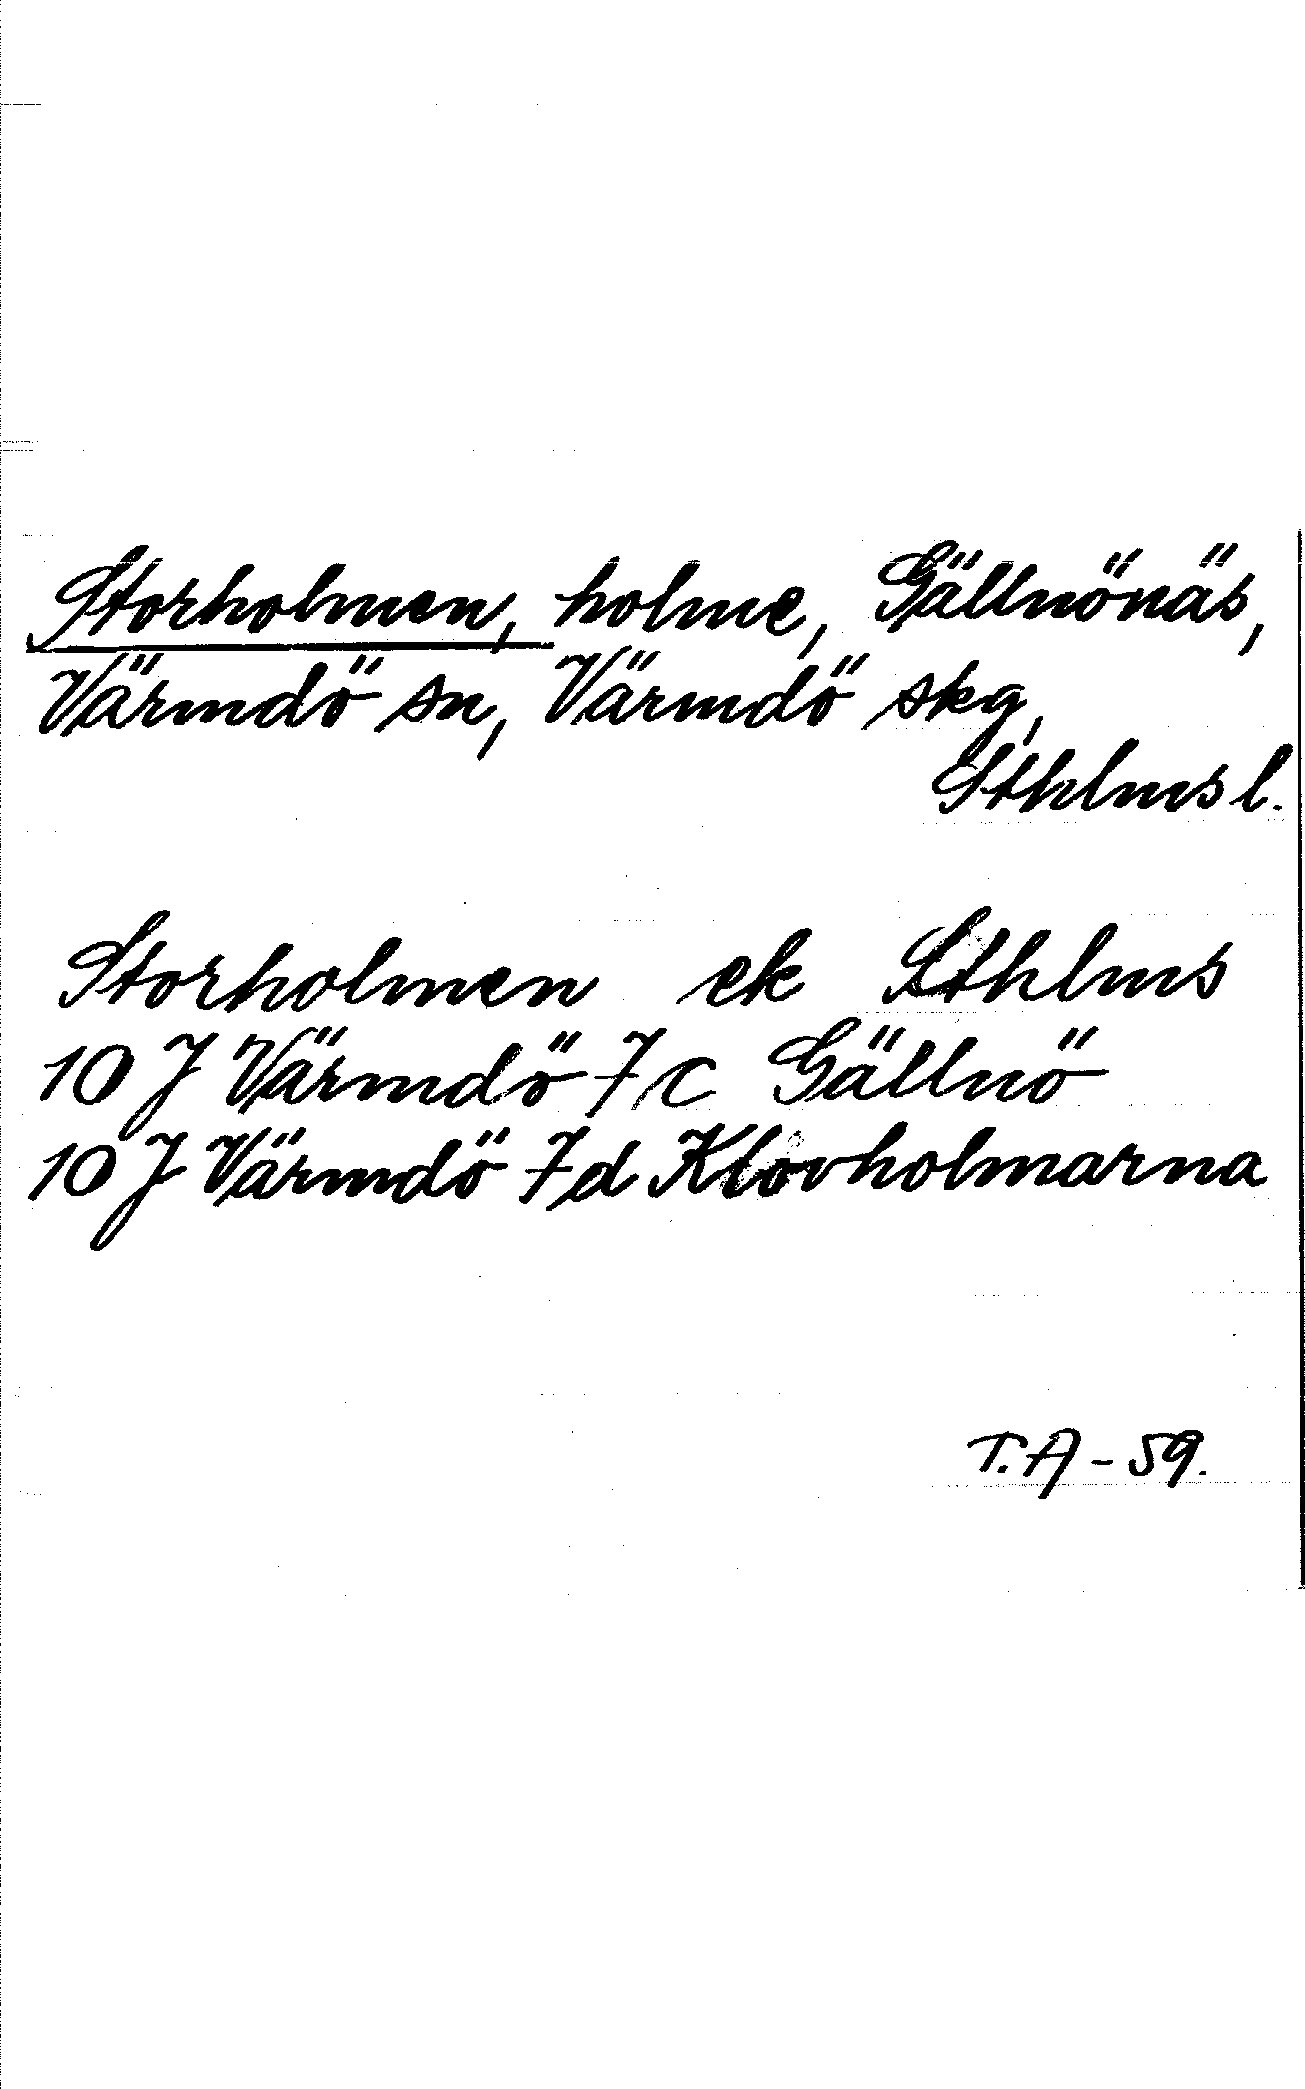 Storholmen, holme, Gällnönäs,
Värmdö sn, Värmdö skg,
Sthlms l.
Storholmen ek Sthlms
10 J Värmdö 7 c Gällnö
10 J Värmdö 7 d Klovholmarna
T.A - 59.